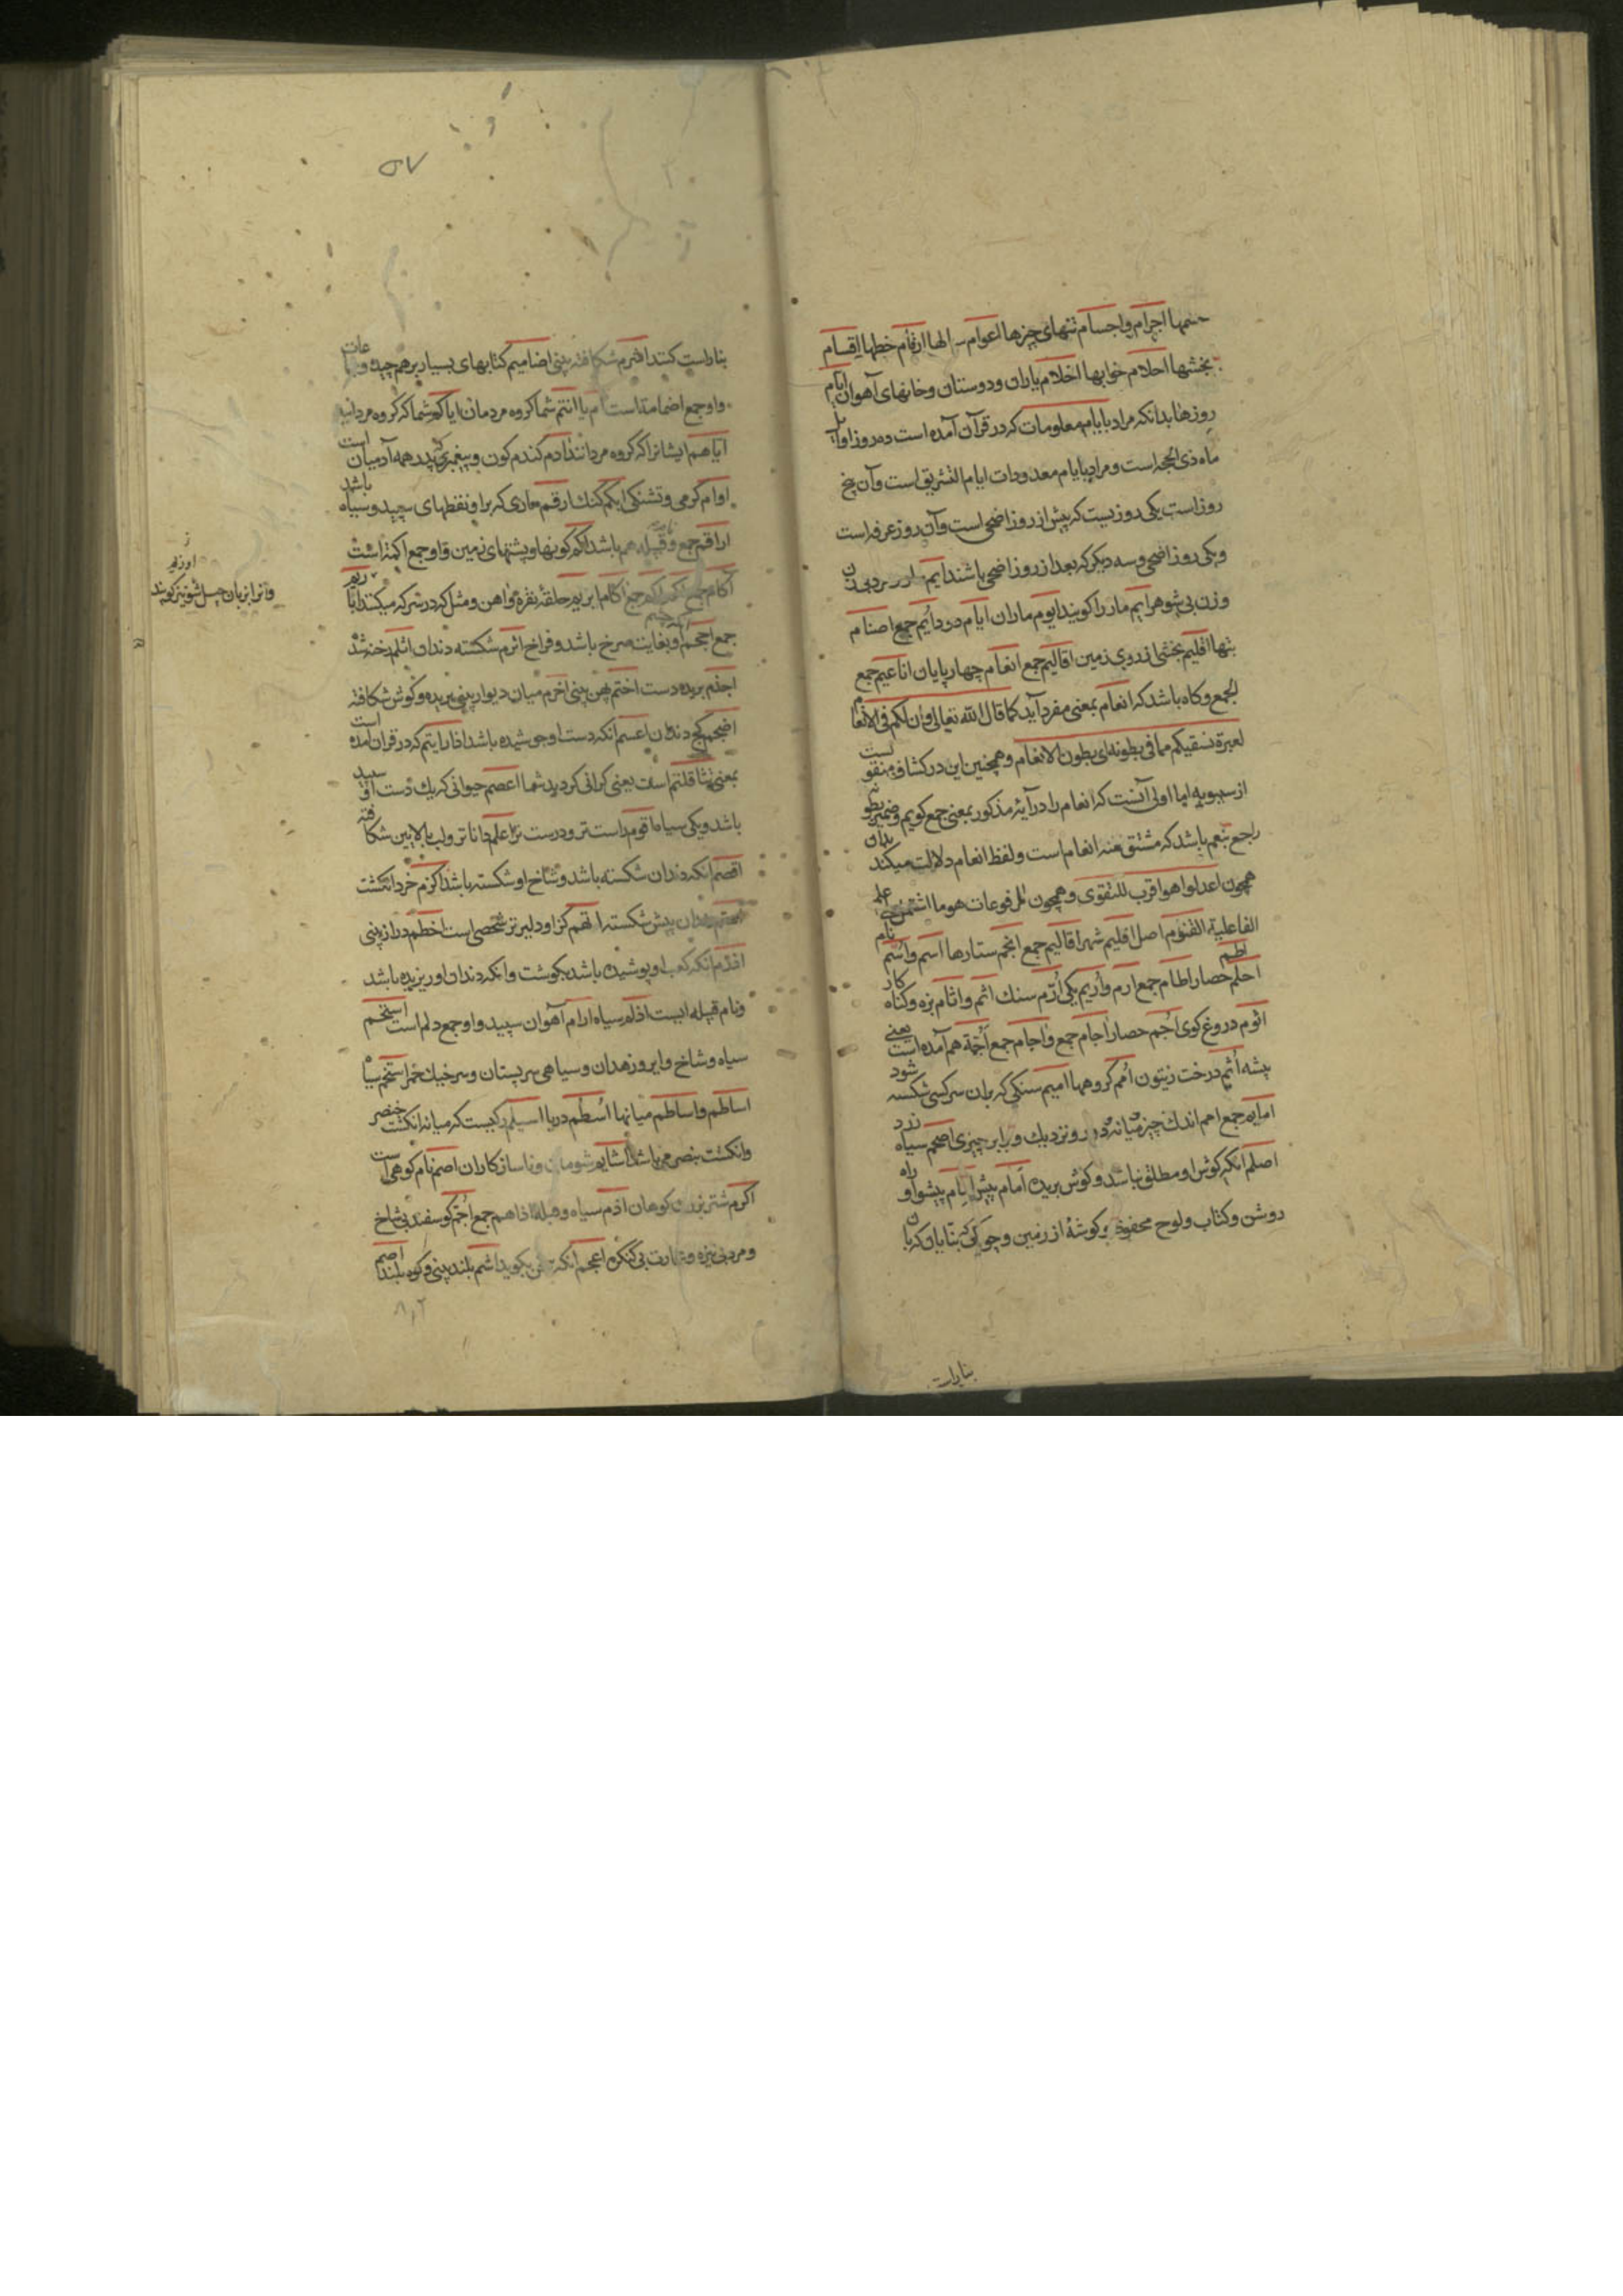 اجرام و اجسام تنهای چیزها اعوام سالها ارقام خطها اقسام
بخشها احلام خوابها اخلام یاران و دوستان و خانهای آهوان ایام
روزها بدانکه مراد بایام معلومات که در قرآن آمده است ده روز اول
ماه ذی الحجه است و مراد بایام معدودات ایام التشریق است و آن پنج
روز است یکی روزیست که پیش از روز اضحی است و آن روز عرفه است
و یکی روز اضحی و سه دیگر که بعد از روز اضحی باشند ایم
و زن بی شوهر ایم مار را کویند ایوم ماران ایام دود ایم جمع اصنام
بتها اقلیم بخشی از روی زمین اقالیم جمع انعام چهارپایان اناعیم جمع
الجمع و کاه باشد که انعام بمعنی مفرد آید کما قال الله تعالی وان لکم فی الانعام
لعبرة نسقیکم مما فی بطونه ای بطون الانعام و همچنین این در کشاف منقولست
از سیبویه اما اولی آنست که انعام را در آیۀ مذکور بمعنی جمع کویم و ضمیر بطونه
راجع بنعم باشد که مشتق منه انعام است و لفظ انعام دلالت میکند بدان
همچون اعدلوا هو اقرب للتقوی و همچون المرفوعات هو ما اشتمل علی علم
الفاعلیة اقنوم اصل اقلیم شهر اقالیم جمع انجم ستارها اسم و اسم نام
اطم
احلم حصار اطام جمع ارم و اریم یکی ارم سنك اثم و اثام بزه و کناه کار
اثوم دروغ کوی اجم حصار اجام جمع و اجام جمع اجمة هم آمده است یعنی
بیشه اثم درخت زیتون امم کروهها امیم سنکی که بدان سر کسی شکسته شود
امایم جمع امم اندك چیز و میانه و نزدیك و برابر چیزی اصحم سیاه زرد
اصلم آنکه کوش او مطلق نباشد و کوش بریده امام پیش امام پیشوا و راه
روشن و کتاب و لوح محفوظ و کوشۀ از زمین و چوبکی که بنایان کربان
بنا راست
۵۷
بنا راست کنند اشرم شکافته بینی اضامیم کتابهای بسیار برهم چیده و جماعات
و او جمع اضمامة است ام یا انتم شما کروه مردمان ایاکم شما که کروه مردانید
ایاهم ایشانرا که کروه مردانند ادم کندم کون و پیغمبری که پدر همه آدمیان است
اوام کرمی و تشنکی ابکم کنك ارقم ماری که بر او نقطهای سپید و سیاه باشد
اراقم جمع و قبیله هم باشد اکم کونها و پشتهای زمین و او جمع اکمة است
آکام جمع اکم اکم جمع اکام ابریم حلقۀ نقره و آهن و مثل که در شرکه میکنند ابازیم
جمع احجم او بغایت سرخ باشد و فراخ اثرم شکسته دندان اثلم رخنه شده
اجذم بریده دست اختم پهن بینی اخرم میان دیوار بینی بریده و کوش شکافته
اضجم کج دندان اعسم آنکه دست او خوشیده باشد ادارایتم که در قران آمده است
بمعنی تثاقلتم است یعنی کرانی کردید شما اعصم حیوانی که یك دست او سپید
باشد و یکی سیاه اقوم راست تر و درست تر اعلم داناتر و لب بالایین شکافته
اقصم آنکه دندان شکسته باشد و شاخ او شکسته باشد اکزم خرد انکشت
اهتم دندان پیش شکسته ادهم کز او دلیر تر شخصی است اخطم دراز بینی
ادرم آنکه کعب او پوشیده باشد بکوشت و آنکه دندان او ریزیده باشد
و نام قبیله ایست ادلم سیاه ارام آهوان سپید و او جمع دلم است اسحم
سیاه و شاخ و ابرو زهدان و سیاهی سر پستان و سر خیك خمر اسخم سیاه
اساطم و اساطم میانها اسطم دریا اسیلم رکیست که میانه انکشت خنصر
وانکشت بنصر می باشد اشایم شومان و ناسازکاران اصم نام کوهی است
اکرم شتر بزرك کوهان ادم سیاه وهله اداهم جمع اجم کوسفند بی شاخ
و مرد بی نیزه و عمارت بی کنکره اعجم آنکه سخن نکوید اشم بلند بینی و کوه بلند اصم
اوزیم
و انرا بزبان چسل شوینز کویند